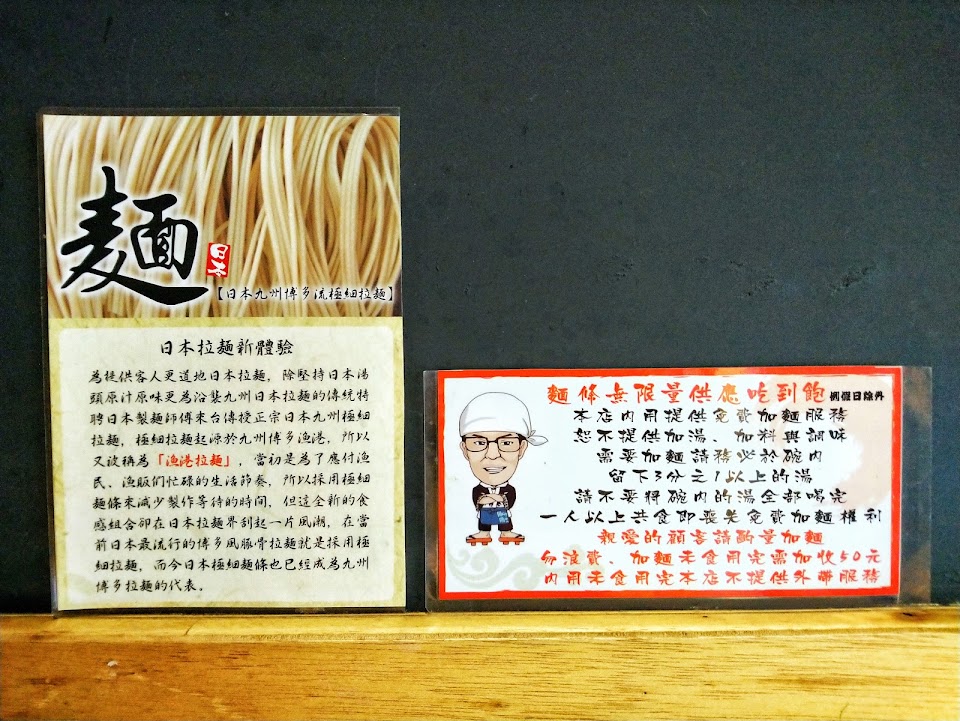 麵
日本
【日本九州博多流極細拉麵】
日本拉麵新體驗
為提供客人更道地日本拉麵，除堅持日本湯
頭原汁原味更為沿襲九州日本拉麵的傳統特
聘日本製麵師傅來台傳授正宗日本九州極細
拉麵，極細拉麵起源於九州博多漁港，所以
又被稱為「漁港拉麵」，當初是為了應付漁
民、漁販們忙碌的生活節奏，所以採用極細
麵條來減少製作等待的時間，但這全新的食
感組合卻在日本拉麵界刮起一片風潮，在當
前日本最流行的博多風豚骨拉麵就是採用極
細拉麵，而今日本極細麵條也已經成為九州
博多拉麵的代表。
麵條無限量供應吃到飽 例假日除外
本店內用提供免費加麵服務
恕不提供加湯、加料與調味
需要加麵請務必於碗內
留下3分之1以上的湯
請不要將碗內的湯全部喝完
一人以上共食即喪失免費加麵權利
親愛的顧客請酌量加麵
勿浪費、加麵未食用完需加收50元
內用未食用完本店不提供外帶服務